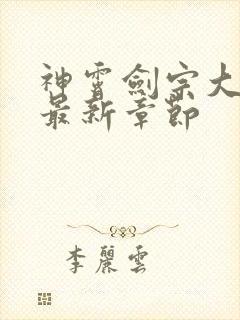 神霄劍宗大
最新章節
李麗雲